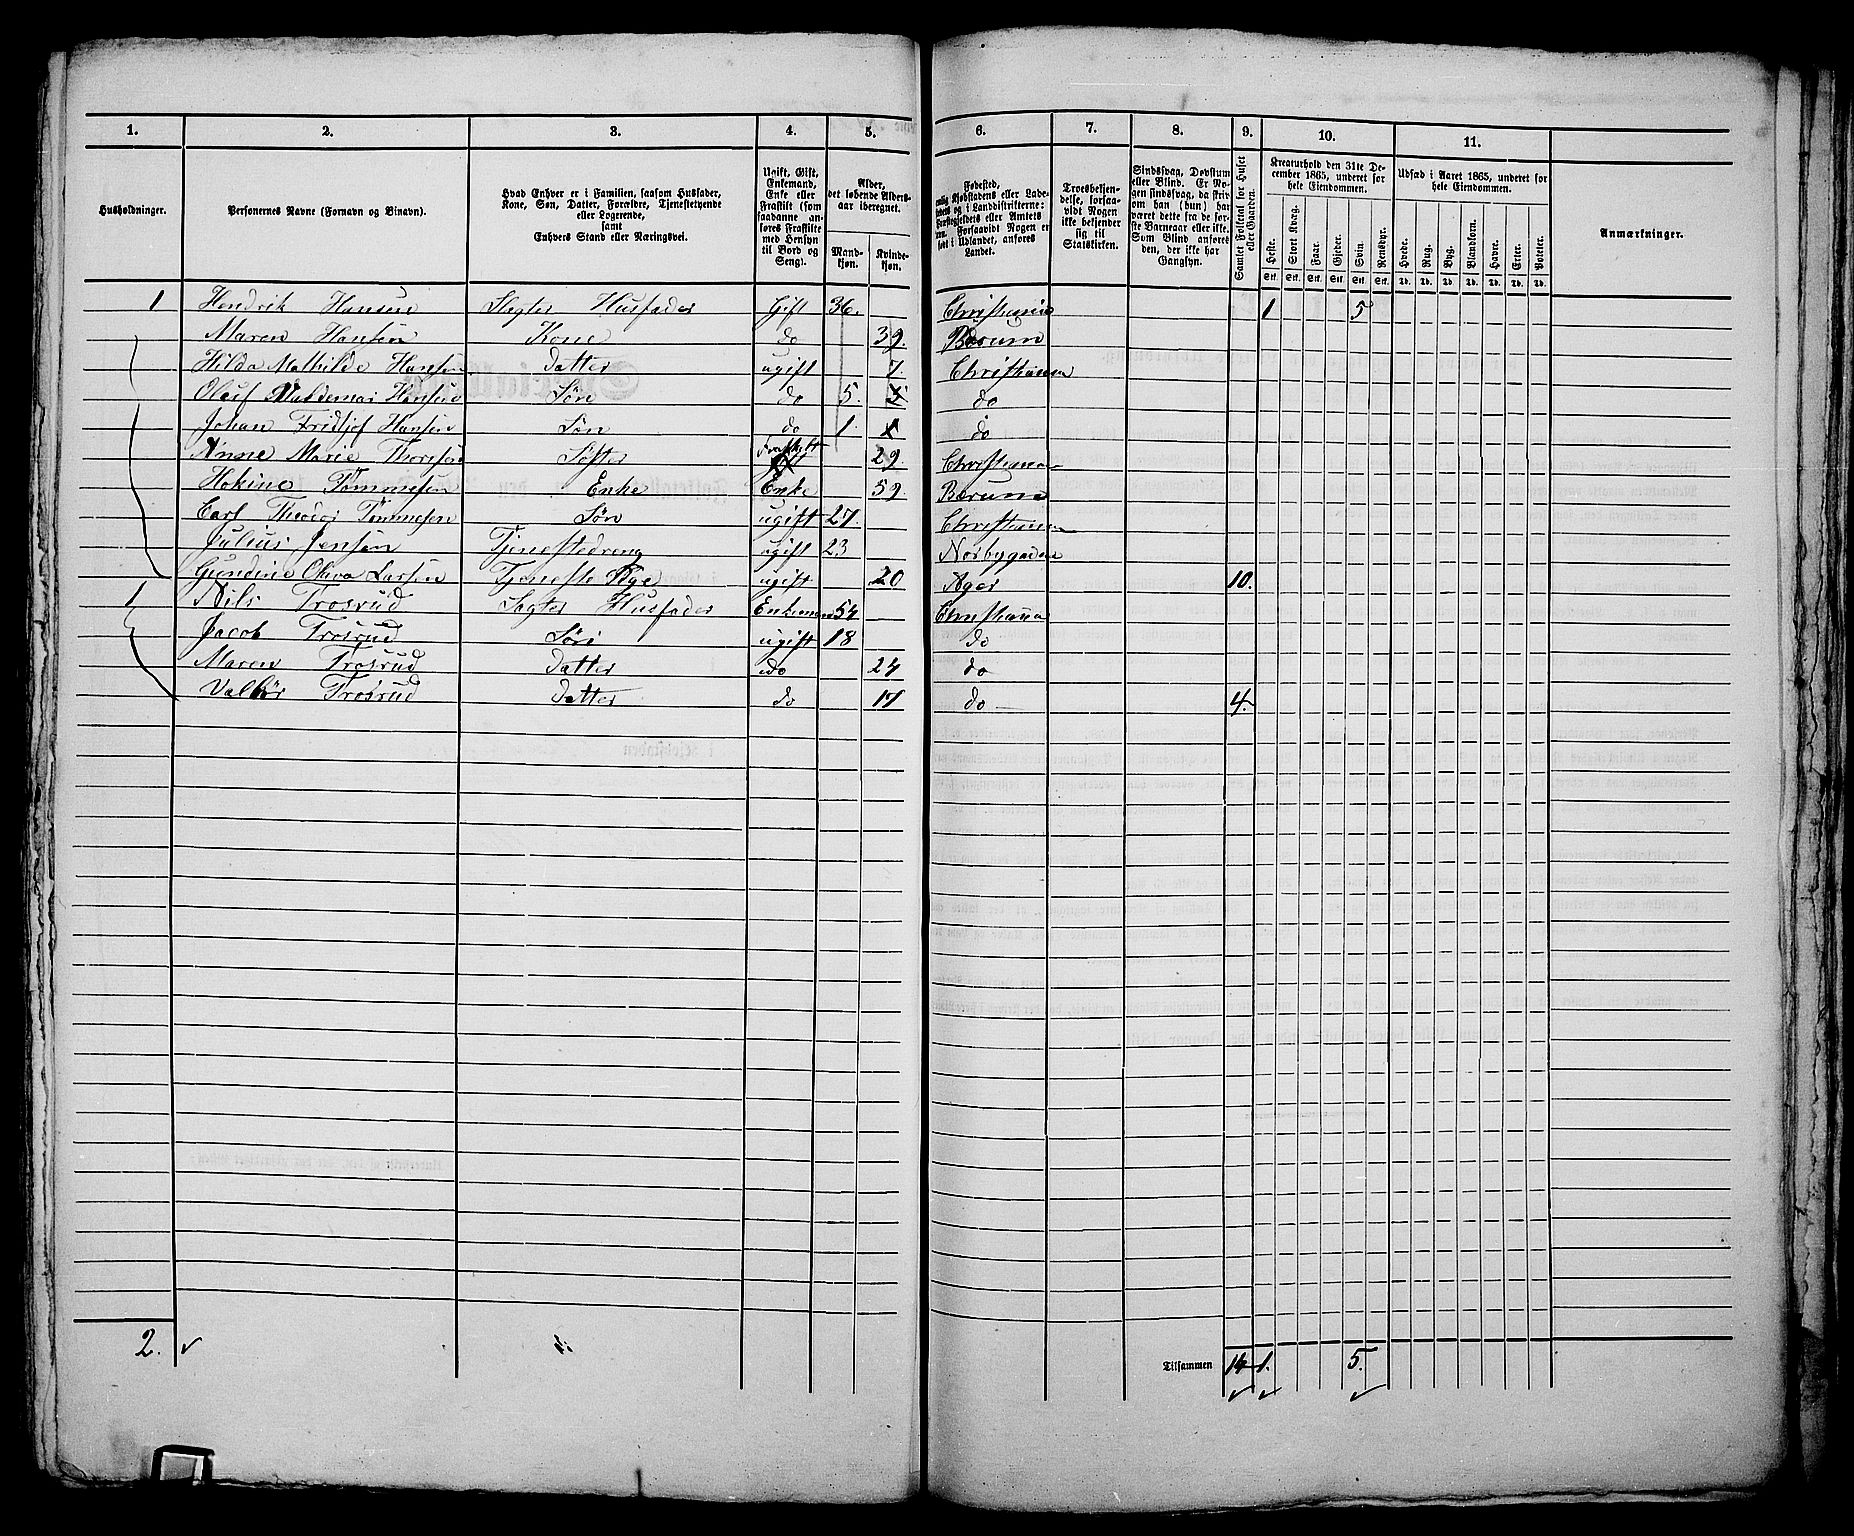 1. 2. 3. 4. 5. 6. 7. 8. 9. 10. 11.
Husholdninger.
Personernes Navne (Fornavn og Binavn).
Hvad Enhver er i Familien, saasom Husfader,
Kone, Søn, Datter, Forældre, Tjenestetyende
eller Logerende,
samt
Enhvers Stand eller Næringsvei.
Ugift, Gift,
Enkemand,
Enke eller
Fraskilt (som
saadanne an-
føres Fraskilte
med Hensyn
til Bord og
Seng).
Alder,
det løbende Alders-
aar iberegnet.
Mand-
kjøn.
Kvinde-
kjøn.
Fødested,
Kjøbstadens eller Lade-
og i Landdistrikterne:
eller Amtets
Forsaavidt Nogen er
født i Udlandet, anføres
Landet.
Troesbekjen-
delse, forsaa-
vidt Nogen
ikke bekjender
sig til
Statskirken.
Sindssvag, Døvstum
eller Blind. Er No-
gen sindssvag, da skriv
om han (hun) har
været dette fra de før-
ste Barneaar eller ikke.
Som Blind anføres
den, der ikke har
Gangsyn.
Samlet Folketal for Huset
eller Gaarden.
Kreaturhold den 31te De-
cember 1865, underet for
hele Eiendommen.
Heste. Stort Kvæg. Faar. Gjeder. Svin. Rensdyr.
Stk. Stk. Stk. Stk. Stk. Stk.
Udsæd i Aaret 1865, underet for
hele Eiendommen.
Hvede. Rug. Byg. Blandkorn. Havre. Erter. Poteter.
Td. Td. Td. Td. Td. Td. Td.
Anmærkninger.
1 Hendrik Hansen Slagter Husfader Gift 36. Christiania 1 5
Maren Hansen Kone do 39. Bærum
Hilda Mathilde Hansen Datter ugift 7. Christiania
Oluf Valdemar Hansen Søn do 5. do
Johan Fridjof Hansen Søn do 1. do
Anne Marie Thoresen Søster Fraskilt 29 Christiania
Hokine Tømmesen Enke Enke 59. Bærum
Carl Theodor Tømmesen Søn ugift 27. Christiania
Julius Jensen Tjenestedreng ugift 23
Gundine Oliva Larsen Tjeneste Pige ugift 20 Ager 10.
1 Nils Trosrud Slagter Husfader Enkeman 54 Christiania
Jacob Trosrud Søn ugift 18 do
Maren Trosrud Datter do 24 do
Valbør Trosrud Datter do 17 do 4.
2.
Tilsammen 14 1. 5.